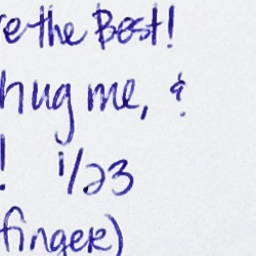 e the Best!
hug me, &
! 1/23
finger)